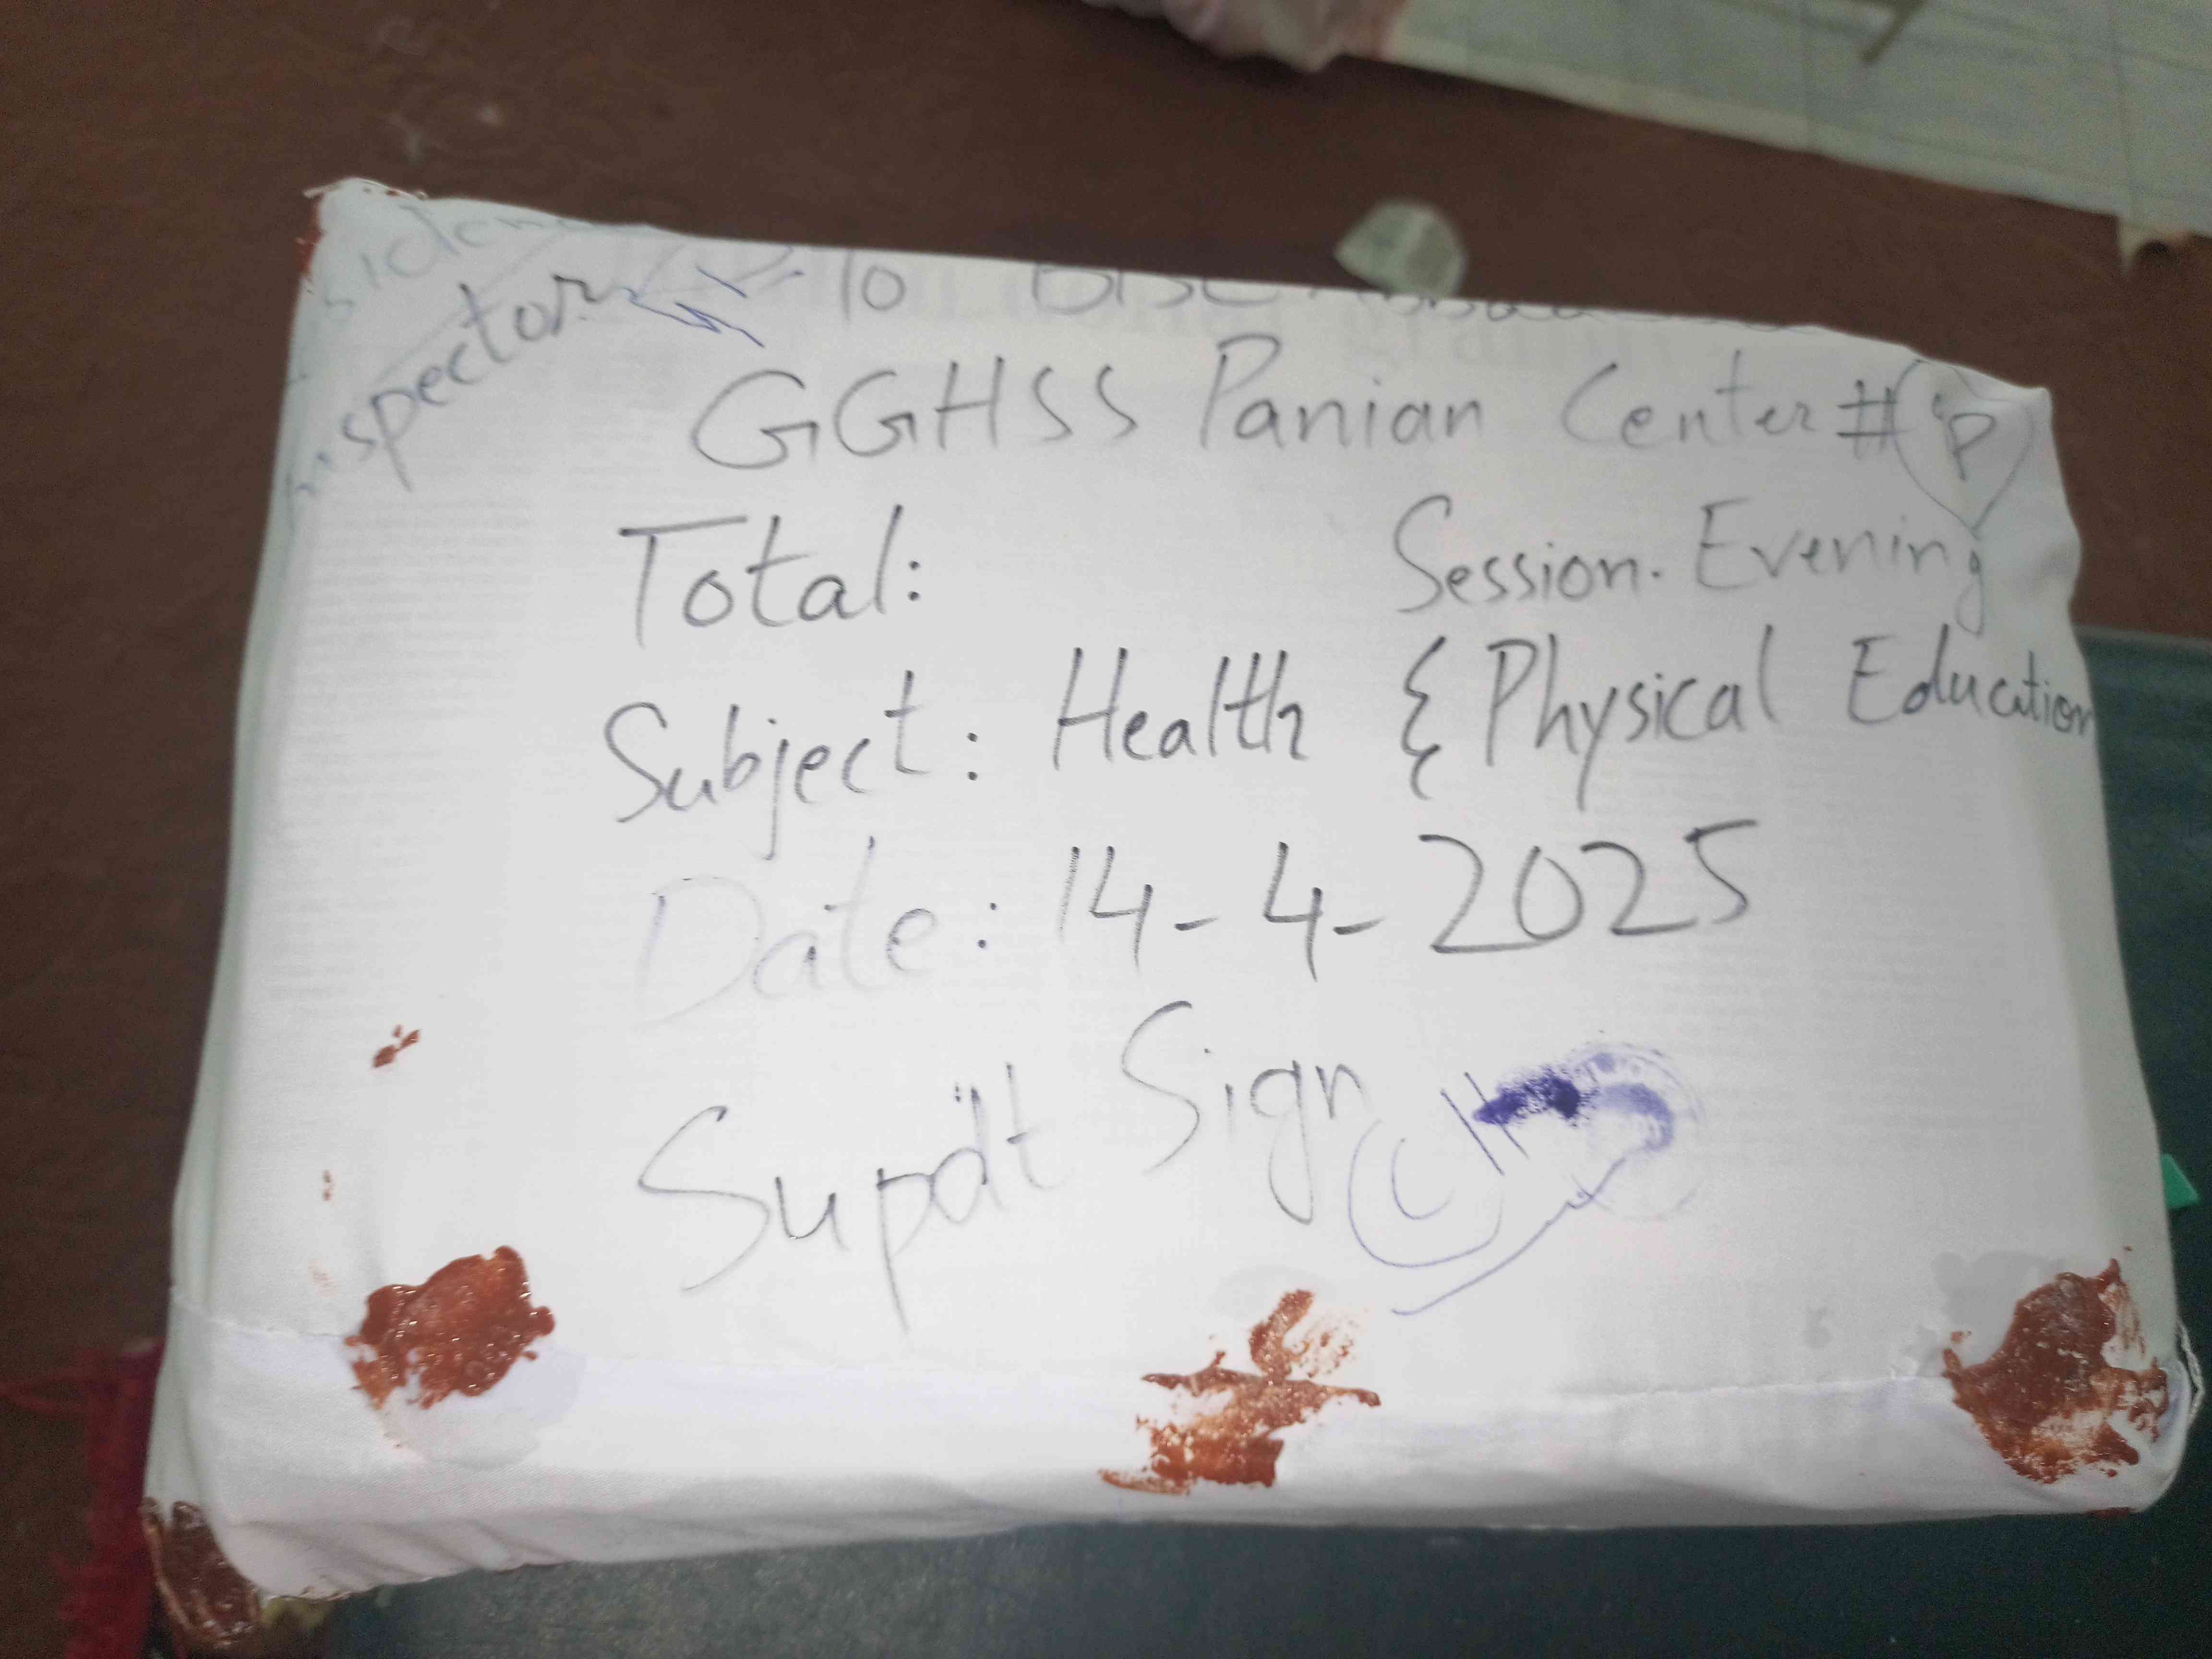 Inspector
To BISE
GGHSS Panian Center # P
Total: Session. Evening
Subject: Health & Physical Education
Date: 14-4-2025
Supdt Sign